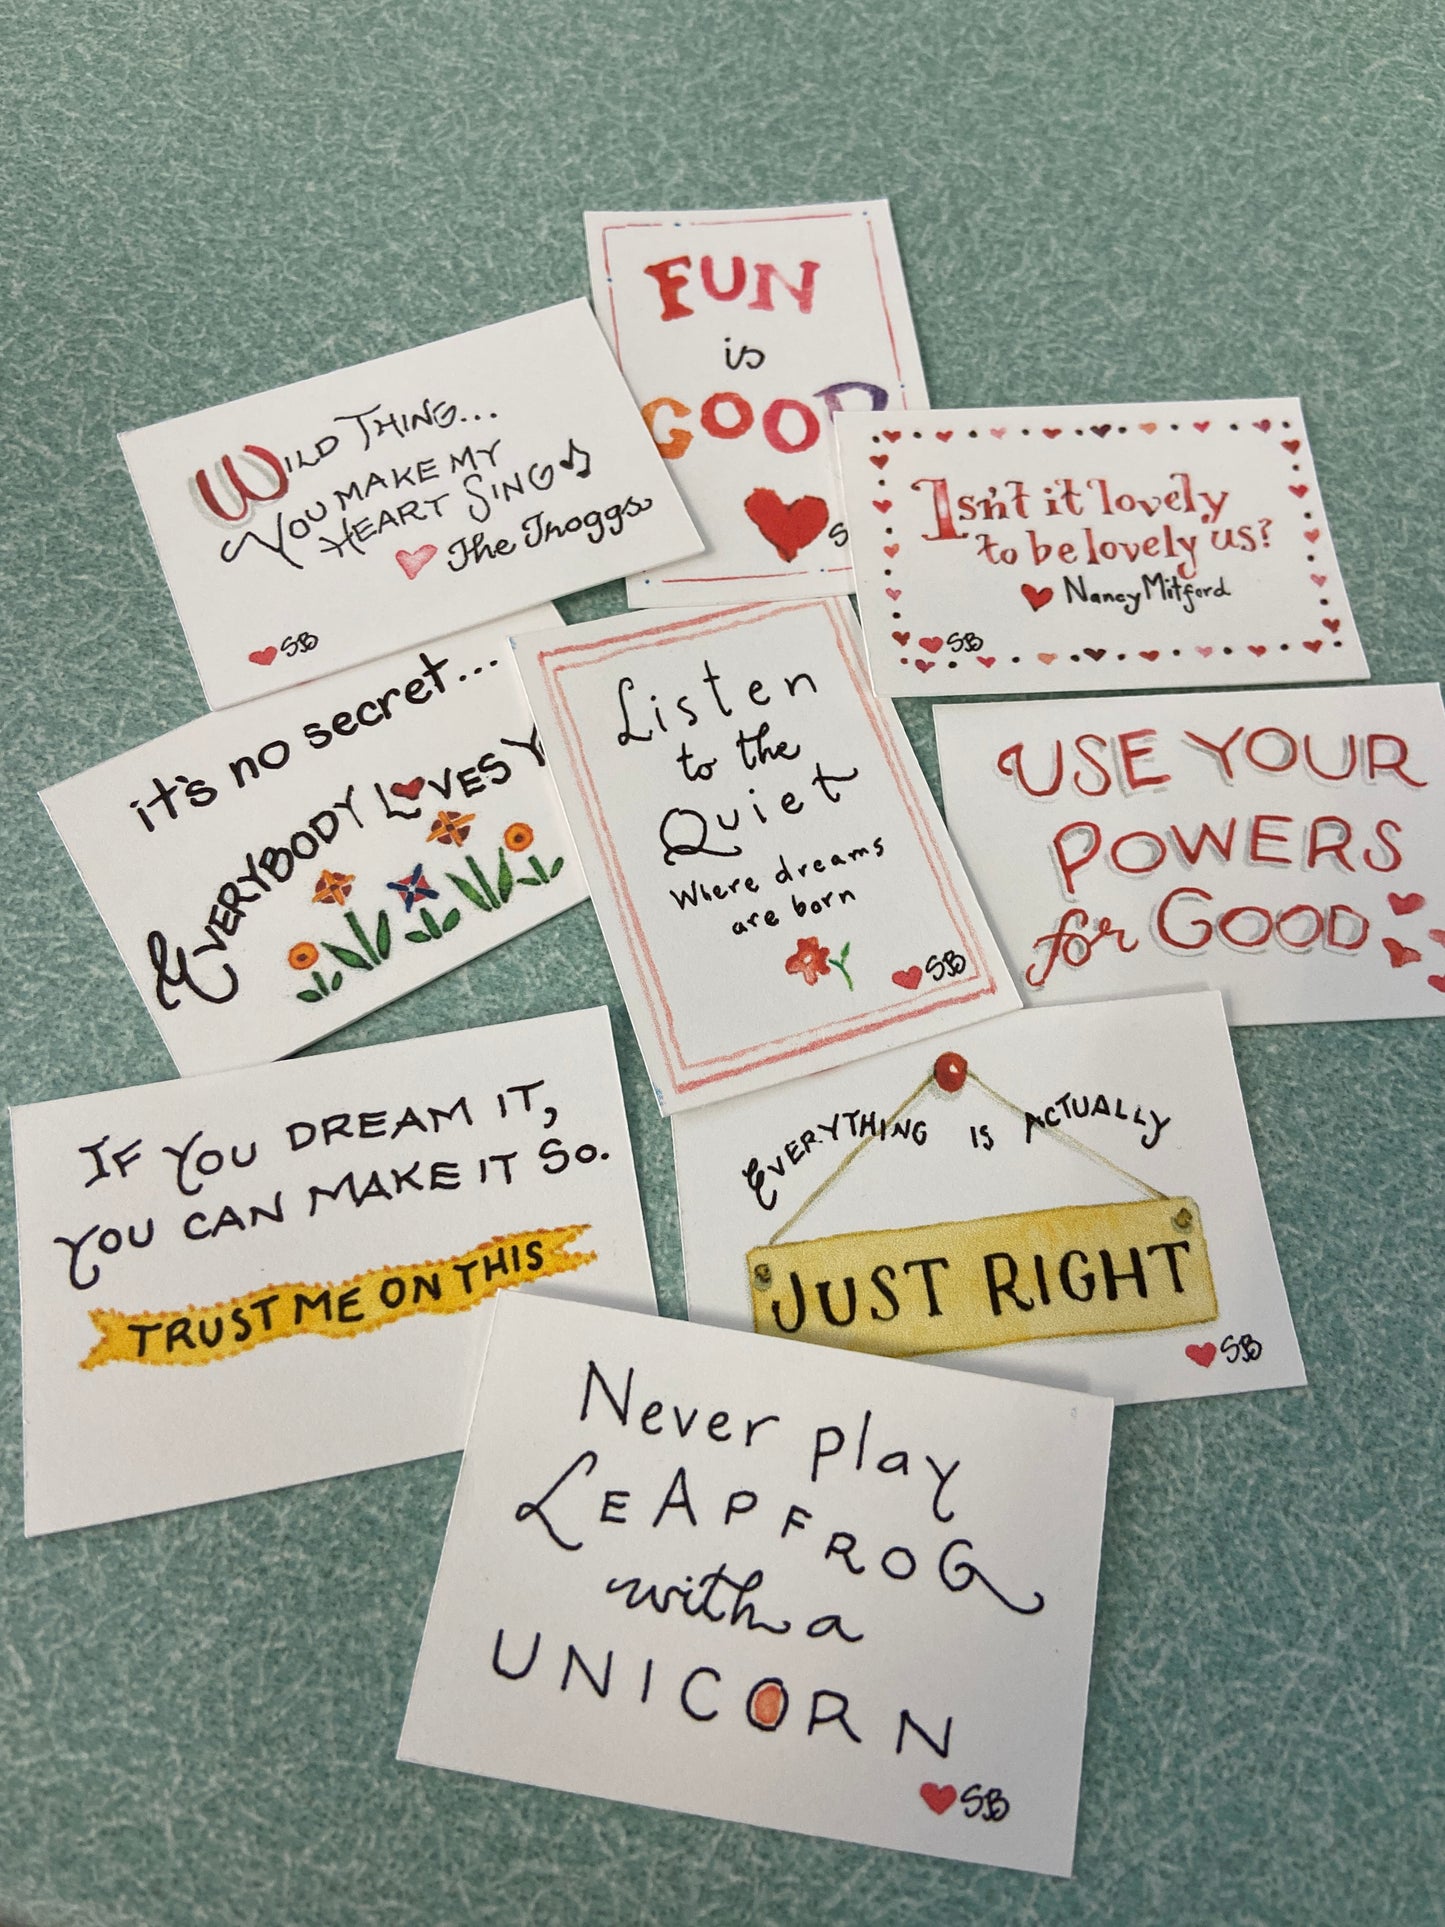 FUN
is
GOOD
S
WILD THING...
YOU MAKE MY
HEART SING
The Troggs
SB
Isn't it lovely
to be lovely us?
Nancy Mitford
SB
it's no secret...
EVERYBODY LOVES Y
Listen
to the
Quiet
Where dreams
are born
SB
USE YOUR
POWERS
for GOOD
IF YOU DREAM IT,
YOU CAN MAKE IT SO.
TRUST ME ON THIS
EVERYTHING IS ACTUALLY
JUST RIGHT
SB
Never play
LEAPFROG
with a
UNICORN
SB